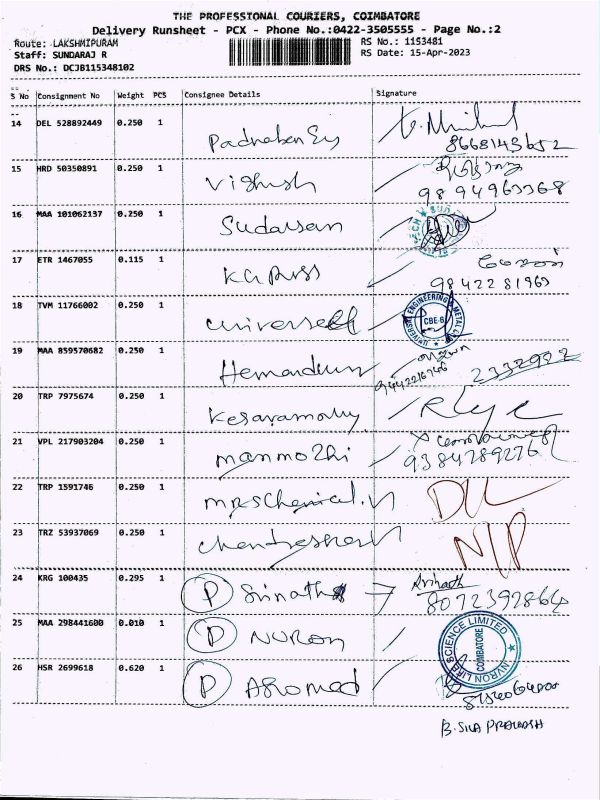 THE PROFESSIONAL COURIERS, COIMBATORE
Delivery Runsheet - PCX - Phone No.:0422-3505555 - Page No.:2
Route: LAKSHMIPURAM RS No.: 1153481
Staff: SUNDARAJ R RS Date: 15-Apr-2023
DRS No.: DCJB115348102
S No Consignment No Weight PCS Consignee Details Signature
14 DEL 528892449 0.250 1
8668143652
15 HRD 50350891 0.250 1 Vighush
9894963368
16 MAA 101062137 0.250 1 Sudarsan
17 ETR 1467055 0.115 1
9842281963
18 TVM 11766002 0.250 1
UNIVERSAL ENGINEERING & METAL
CBE-6
19 MAA 859570682 0.250 1
9442216746 2332922
20 TRP 7975674 0.250 1
21 VPL 217903204 0.250 1 manmozhi
9384789276
22 TRP 1591746 0.250 1 MRS Chemical
DL
23 TRZ 53937069 0.250 1
N/P
24 KRG 100435 0.295 1 P Srinath Srinath
8072392864
25 MAA 298441600 0.010 1 P NVRON
NVRON LIFE SCIENCE LIMITED
COIMBATORE
26 HSR 2699618 0.620 1 P
B. SIVA PRAKASH